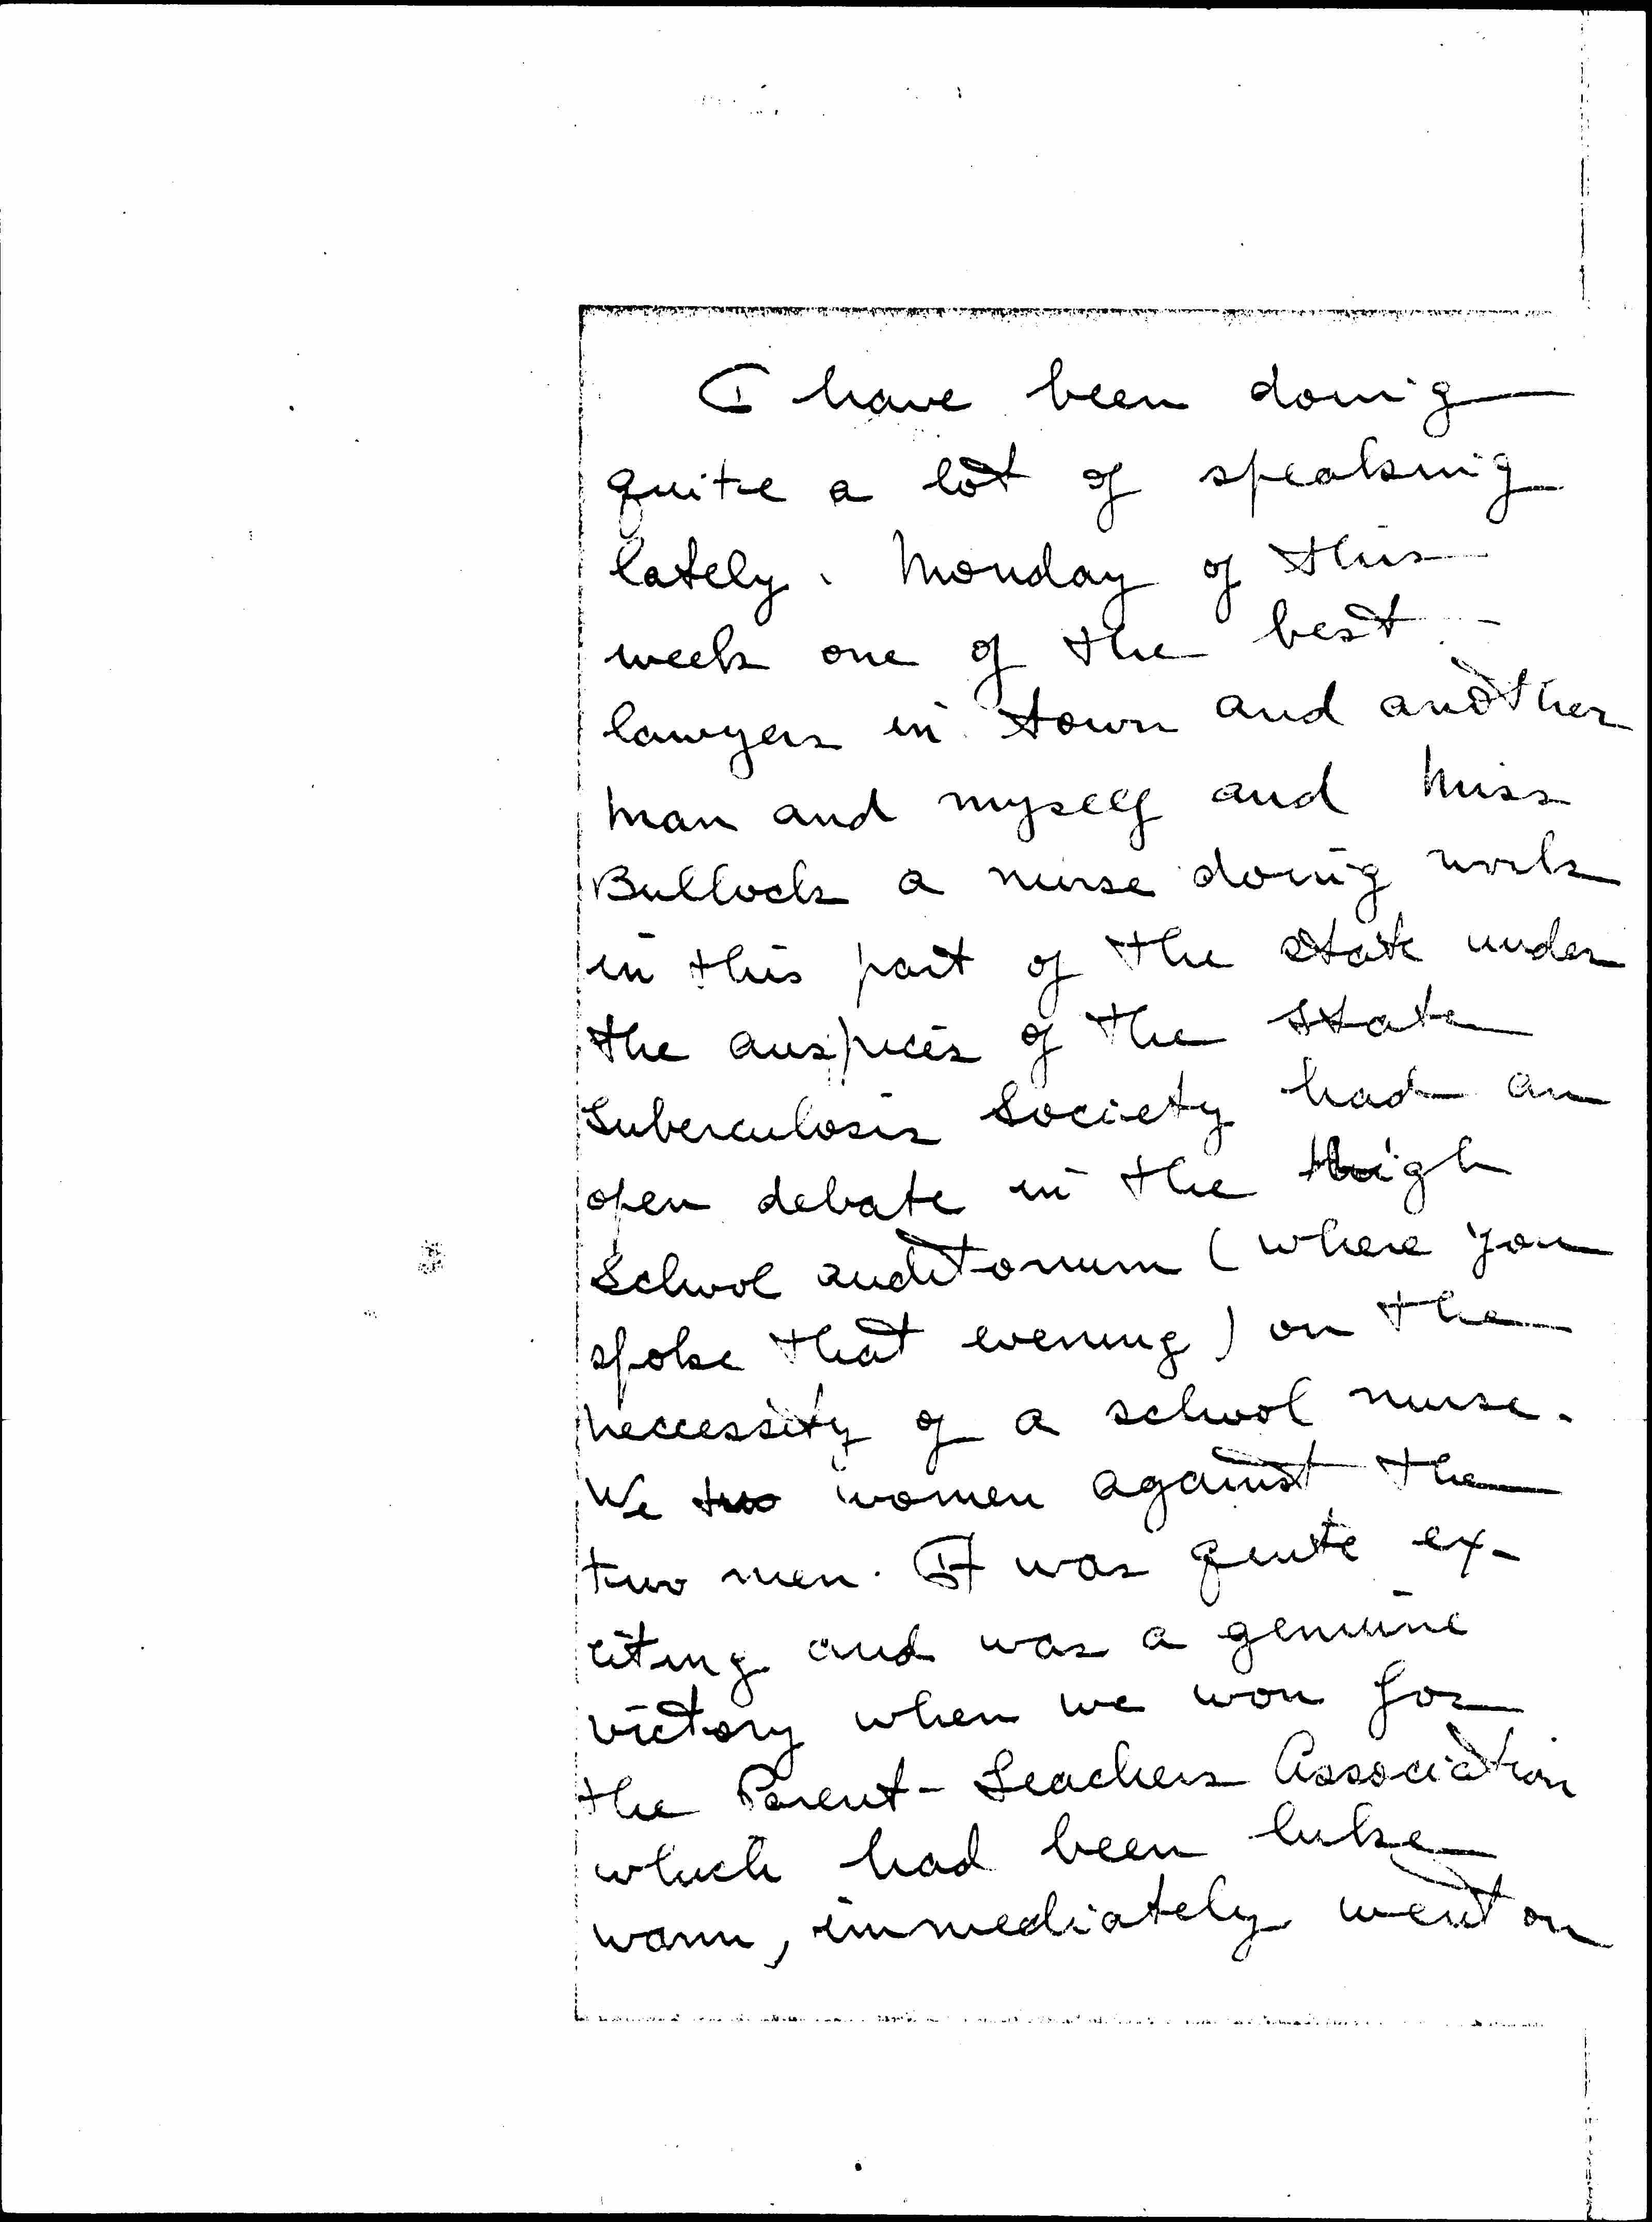 I have been doing
quite a lot of speaking
lately. Monday of this
week one of the best
lawyers in town and another
man and myself and Miss
Bullock a nurse doing work
in this part of the state under
the auspices of the State
Tuberculosis Society had an
open debate in the High
School auditorium (where you
spoke that evening) on the
neccessity of a school nurse.
We two women against the
two men. It was quite ex-
citing and was a genuine
victory when we won for
the Parent-Teachers Association
which had been luke
warm, immediately went on